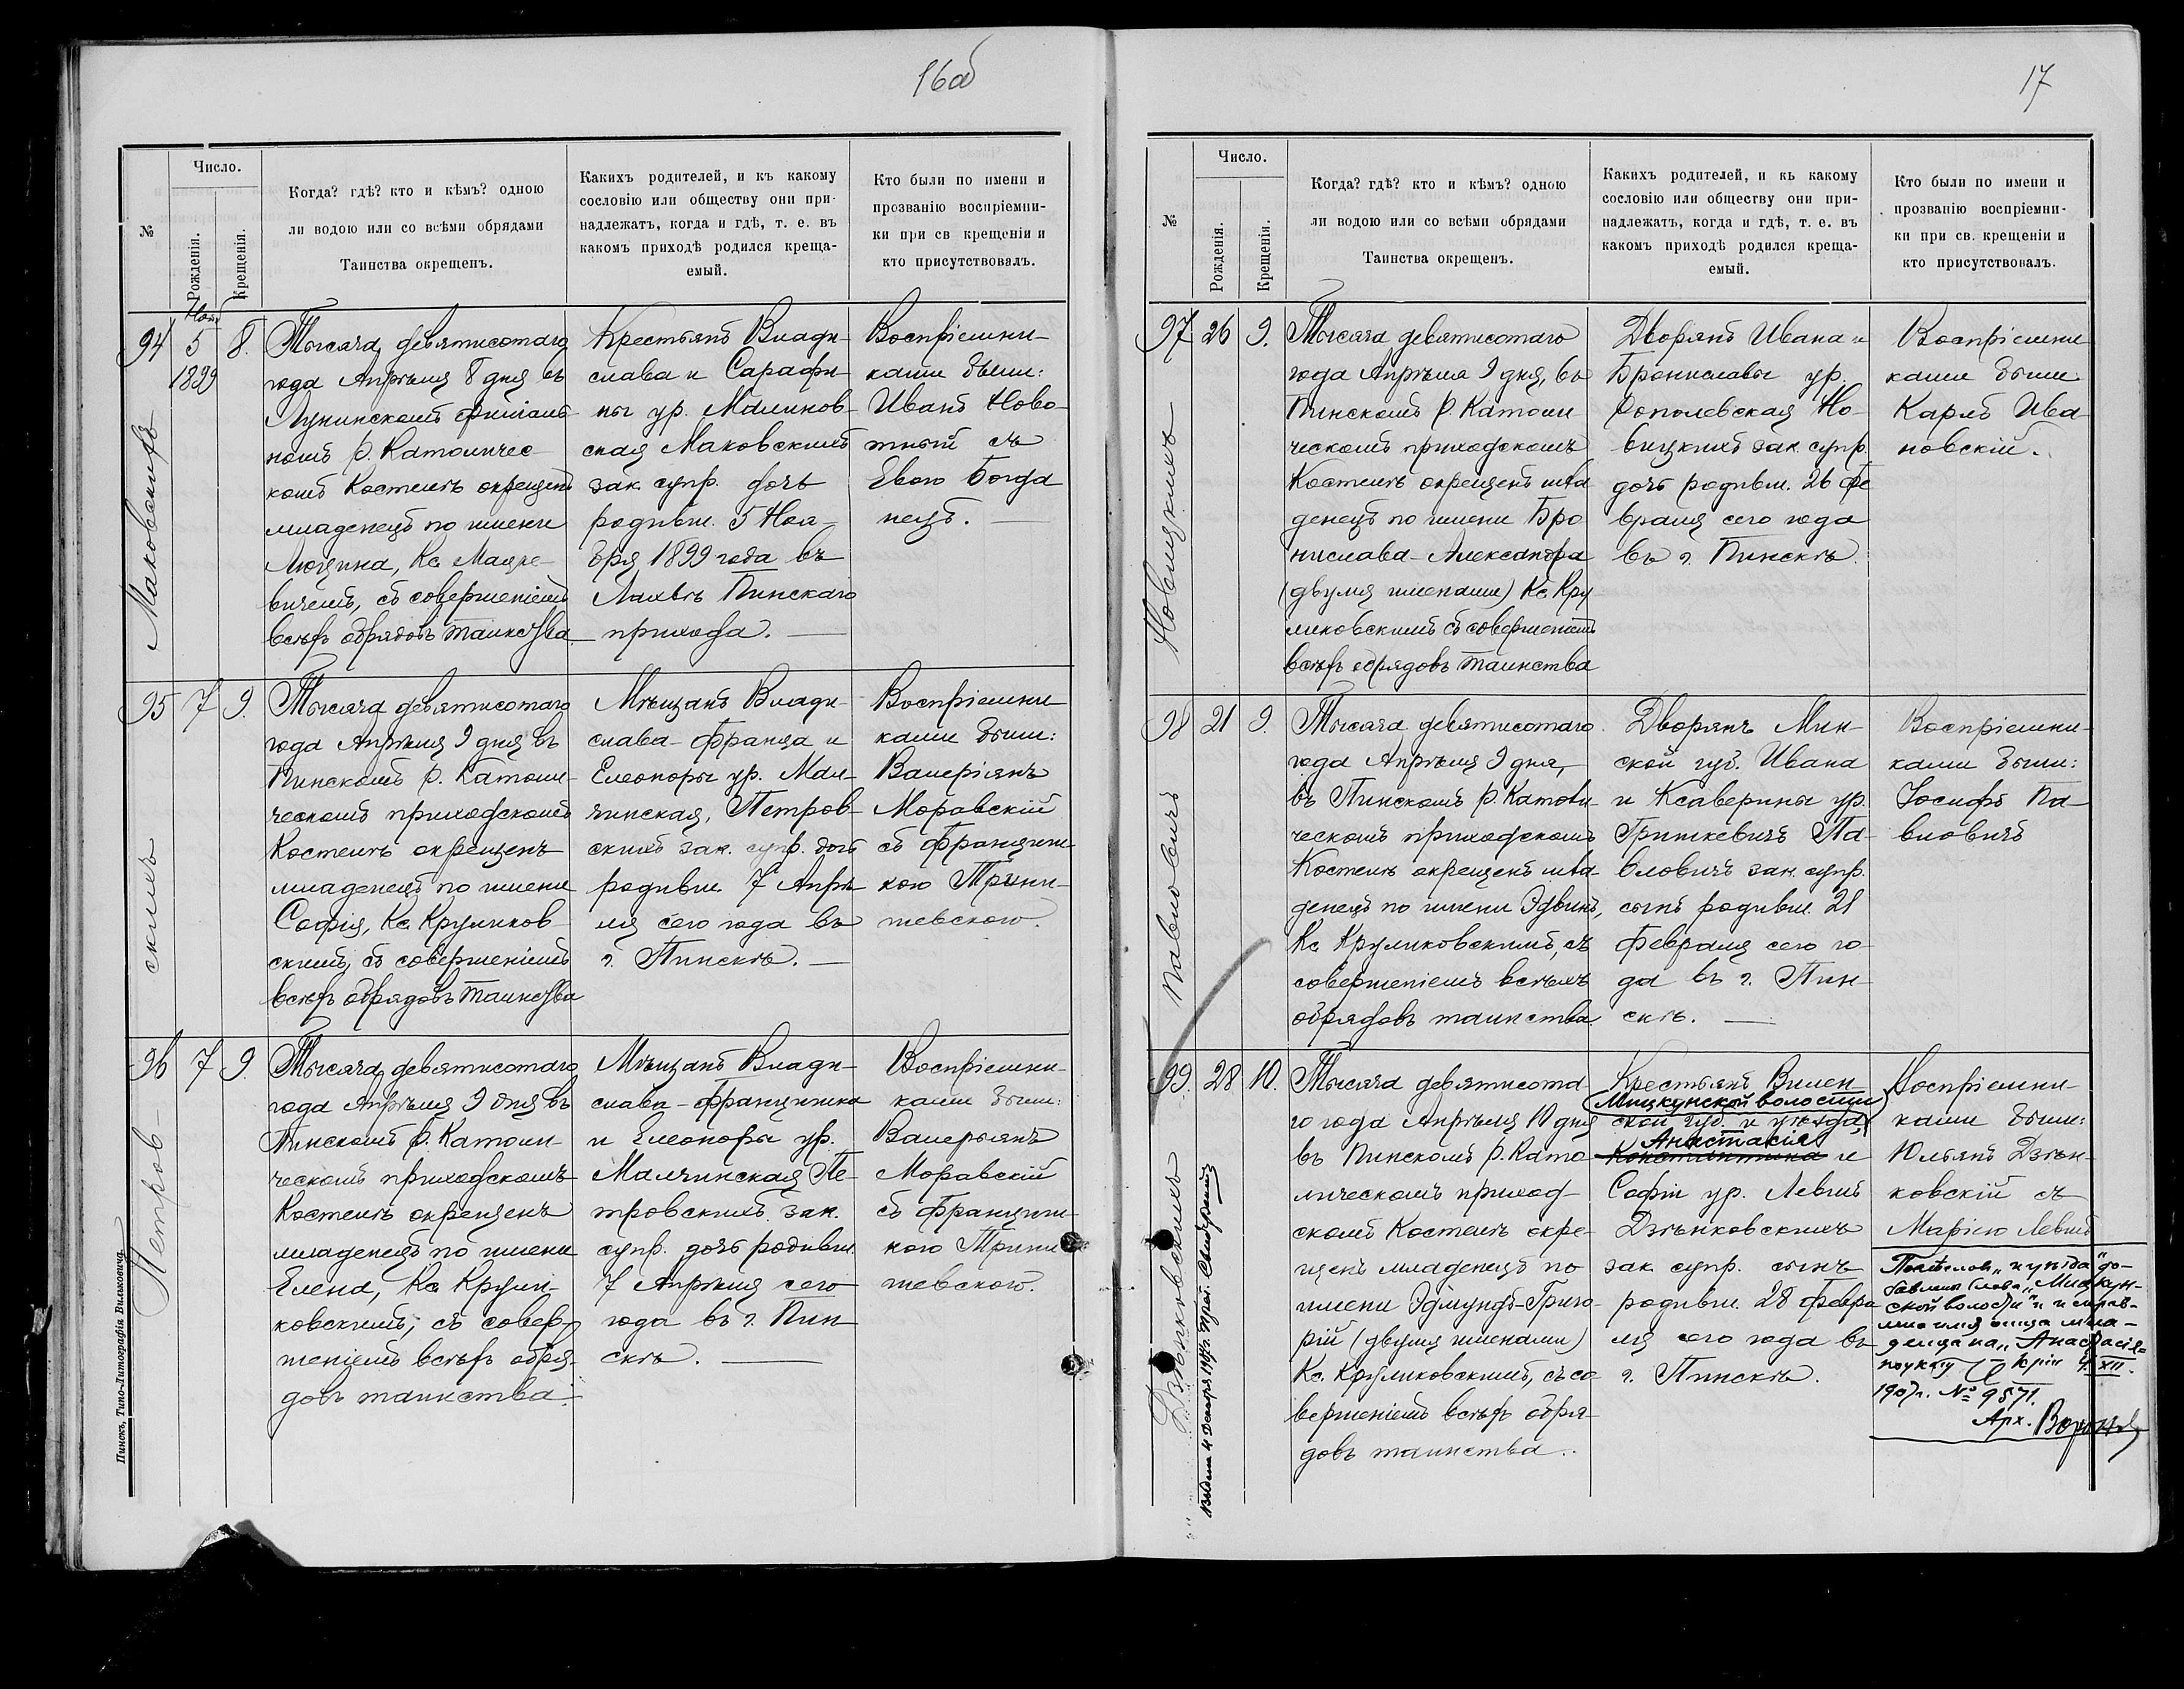 16об
№
Число.
Рожденія.
Крещенія.
Когда? гдѣ? кто и кѣмъ? одною
ли водою или со всѣми обрядами
Таинства окрещенъ.
Какихъ родителей, и къ какому
сословію или обществу они при-
надлежатъ, когда и гдѣ, т. е. въ
какомъ приходѣ родился креща-
емый.
Кто были по имени и
прозванію воспріемни-
ки при св крещеніи и
кто присутствовалъ.
94
Ноя
5
1899
8.
Маковскихъ
Тысяча девятисотаго
года Апрѣля 8 дня въ
Лунинскомъ филіаль-
номъ Р. Католичес-
комъ Костелѣ окрещенъ
младенецъ по имени
Люцина, Кс. Мацке-
вичемъ, съ совершеніемъ
всѣхъ обрядовъ таинства
Крестьянъ Влади-
слава и Сарафи-
ны ур. Малинов-
ская Маковскихъ
зак. супр. дочь
родивш. 5 Ноя-
бря 1899 года въ
Лахвѣ Пинскаго
прихода.
Воспріемни-
ками были:
Иванъ Ново-
тный съ
Евою Богда
нецъ.
95
7
9.
скихъ
Тысяча девятисотаго
года Апрѣля 9 дня въ
Пинскомъ Р. Католи-
ческомъ приходскомъ
Костелѣ окрещенъ
младенецъ по имени
Софія, Кс. Круликов-
скимъ, съ совершеніемъ
всѣхъ обрядовъ таинства
Мѣщанъ Влади-
слава-Франца и
Елеоноры ур. Мал-
чинская, Петров-
скихъ зак. супр. дочь
родивш. 7 Апрѣ-
ля сего года въ
г. Пинскѣ.
Воспріемни
ками были:
Валеріянъ
Моравскій
съ Францишк-
кою Трыни-
шевскою.
96
7
9.
Петров-
Тысяча девятисотаго
года Апрѣля 9 дня въ
Пинскомъ Р. Католи-
ческомъ приходскомъ
Костелѣ окрещенъ
младенецъ по имени
Елена, Кс. Крули-
ковскимъ, съ совер-
шеніемъ всѣхъ обря-
довъ таинства.
Мѣщанъ Влади-
слава-Францишка
и Елеоноры ур.
Малчинская Пе-
тровскихъ зак.
супр. дочь родивш.
7 Апрѣля сего
года въ г. Пин-
скѣ.
Воспріемни-
ками были:
Валерьянъ
Моравскій
съ Францишк-
кою Трини
шевскою.
Пинскъ, Типо-Литографія Вильковича.
17
№
Число.
Рожденія.
Крещенія.
Когда? гдѣ? кто и кѣмъ? одною
ли водою или со всѣми обрядами
Таинства окрещенъ.
Какихъ родителей, и къ какому
сословію или обществу они при-
надлежатъ, когда и гдѣ, т. е. въ
какомъ приходѣ родился креща-
емый.
Кто были по имени и
прозванію воспріемни-
ки при св. крещеніи и
кто присутствовалъ.
97
26
9.
Новицкихъ
Тысяча девятисотаго
года Апрѣля 9 дня, въ
Пинскомъ Р. Католи
ческомъ приходскомъ
Костелѣ окрещенъ мла
денецъ по имени Бро
нислава-Александра
(двумя именами) Кс. Кру
ликовскимъ съ совершеніемъ
всѣхъ обрядовъ таинства
Дворянъ Ивана и
Брониславы ур.
Рополевская Но-
вицкихъ зак. супр.
дочь родивш. 26 Фе
враля сего года
въ г. Пинскѣ.
Воспріемни
ками были
Карлъ Ива
новскій.
98
21
9.
Павловичъ
Тысяча девятисотаго
года Апрѣля 9 дня,
въ Пинскомъ Р. Катол-
ческомъ приходскомъ
Костелѣ окрещенъ мла-
денецъ по имени Эдвинъ,
Кс. Круликовскимъ, съ
совершеніемъ всѣхъ
обрядовъ таинства.
Дворянъ Мин-
ской губ. Ивана
и Ксаверины ур.
Гришкевичъ Па-
вловичъ зак. супр.
сынъ родивш. 21
Февраля сего го-
да въ г. Пин-
скѣ.
Воспріемни-
ками были:
Іосифъ Па-
вловичъ
99.
28
10.
Дзѣньковскихъ
Тысяча девятисота-
го года Апрѣля 10 дня
въ Пинскомъ Р. Като-
лическомъ приход-
скомъ Костелѣ окре-
щенъ младенецъ по
имени Эдмундъ-Григо-
рій (двумя именами)
Кс. Круликовскимъ, съ со
вершеніемъ всѣхъ обря-
довъ таинства.
Крестьянъ Вилен
Мицкунской волости
ской губ. и уѣзда,
Анастасія
Константина и
Софіи ур. Левшъ
Дзѣнковскихъ
зак. супр. сынъ
родивш. 28 Февра
ля сего года въ
г. Пинскѣ.
Воспріемни-
ками были:
Юльянъ Дзѣн-
ковскій съ
Маріею Левшъ
до-
бавлены слова "Мицкун-
ской волости" и исправ-
лено имя отца мла-
денца на "Анастасія"
по указу
XII.
1907г. № 9571.
Арх.